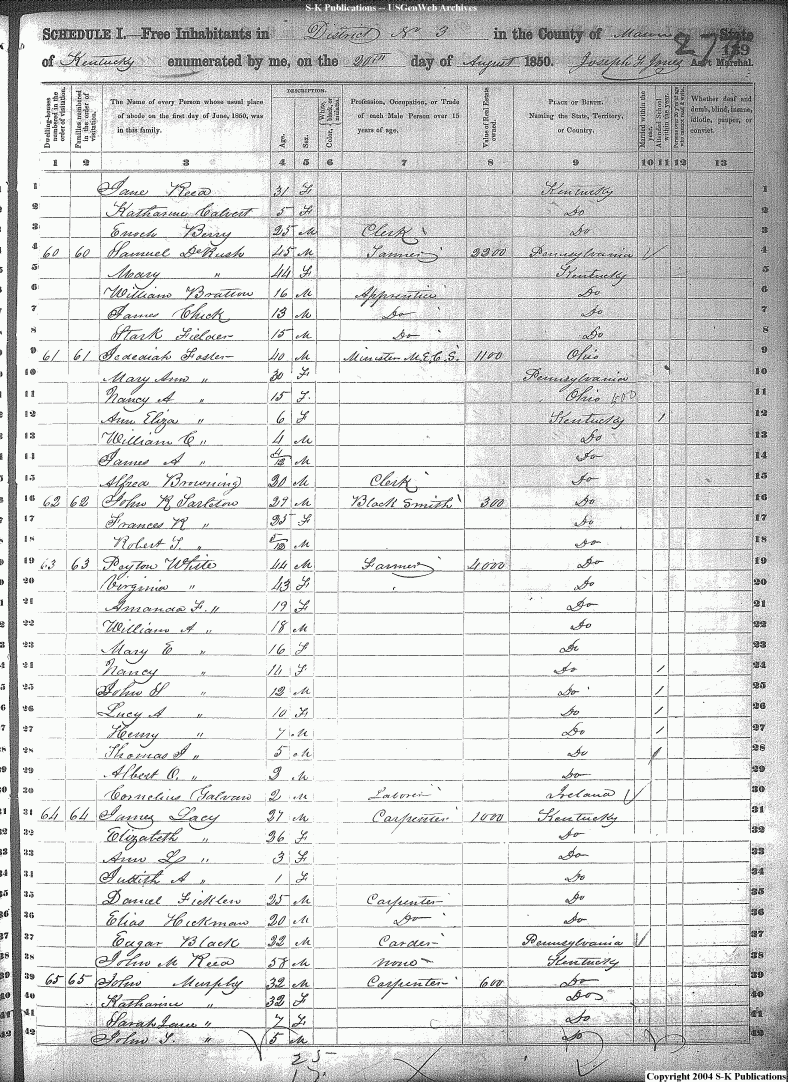 S-K Publications -- USGenWeb Archives
SCHEDULE I.—Free Inhabitants in District No 3 in the County of State
27 189
of Kentucky enumerated by me, on the 20th day of August 1850. Joseph F Jones Ass't Marshal.
DESCRIPTION.
Dwelling-houses numbered in the order of visitation. Families numbered in the order of visitation. The Name of every Person whose usual place of abode on the first day of June, 1850, was in this family. Age. Sex. Color, White, black, or mulatto. Profession, Occupation, or Trade of each Male Person over 15 years of age. Value of Real Estate owned. PLACE OF BIRTH. Naming the State, Territory, or Country. Married within the year. Attended School within the year. Whether deaf and dumb, blind, insane, idiotic, pauper, or convict.
1 2 3 4 5 6 7 8 9 10 11 12 13
1 Jane Reed 31 F Kentucky 1
2 Katharine Calvert 5 F Do 2
3 Enoch Berry 25 M Clerk Do 3
4 60 60 Samuel DeRush 45 M Tanner 2200 Pennsylvania 4
5 Mary " 44 F Kentucky 5
6 William Bratton 16 M Apprentice Do 6
7 James Chick 13 M Do Do 7
8 Stark Fielder 15 M Do Do 8
9 61 61 Jedediah Foster 40 M Minister M.E.C.S. 1100 Ohio 9
10 Mary Ann " 30 F Pennsylvania 10
11 Nancy A " 15 F. Ohio 11
12 Ann Eliza " 6 F Kentucky 1 12
13 William C " 4 M Do 13
14 James A " M Do 14
15 Alfred Browning 20 M Clerk Do 15
16 62 62 John R Tarleton 29 M Black Smith 300 Do 16
17 Frances R " 25 F Do 17
18 Robert T. " 5/12 M Do 18
19 63 63 Peyton White 44 M Farmer 4000 Do 19
20 Virginia " 43 F Do 20
21 Amanda F. " 19 F Do 21
22 William A " 18 M Do 22
23 Mary E " 16 F Do 23
24 Nancy " 14 F Do 1 24
25 John H " 12 M Do 1 25
26 Lucy A " 10 F Do 1 26
27 Henry " 7 M Do 1 27
28 Thomas J " 5 M Do 1 28
29 Albert O. " 3 M Do 29
30 Cornelius Galvan 2 M Laborer Ireland 30
31 64 64 James Lacy 27 M Carpenter 1000 Kentucky 31
32 Elizabeth " 26 F Do 32
33 Ann L " 3 F Do 33
34 Judith A " 1 F Do 34
35 Daniel Ficklen 25 M Carpenter Do 35
36 Elias Hickman 20 M Do Do 36
37 Edgar Black 22 M Carder Pennsylvania 37
38 John M Reed 58 M none Kentucky 38
39 65 65 John Murphy 32 M Carpenter 600 Do 39
40 Katharine " 32 F Do 40
41 Sarah Jane " 7 F Do 41
42 John T. " 5 M Do 42
25
17
Copyright 2004 S-K Publications